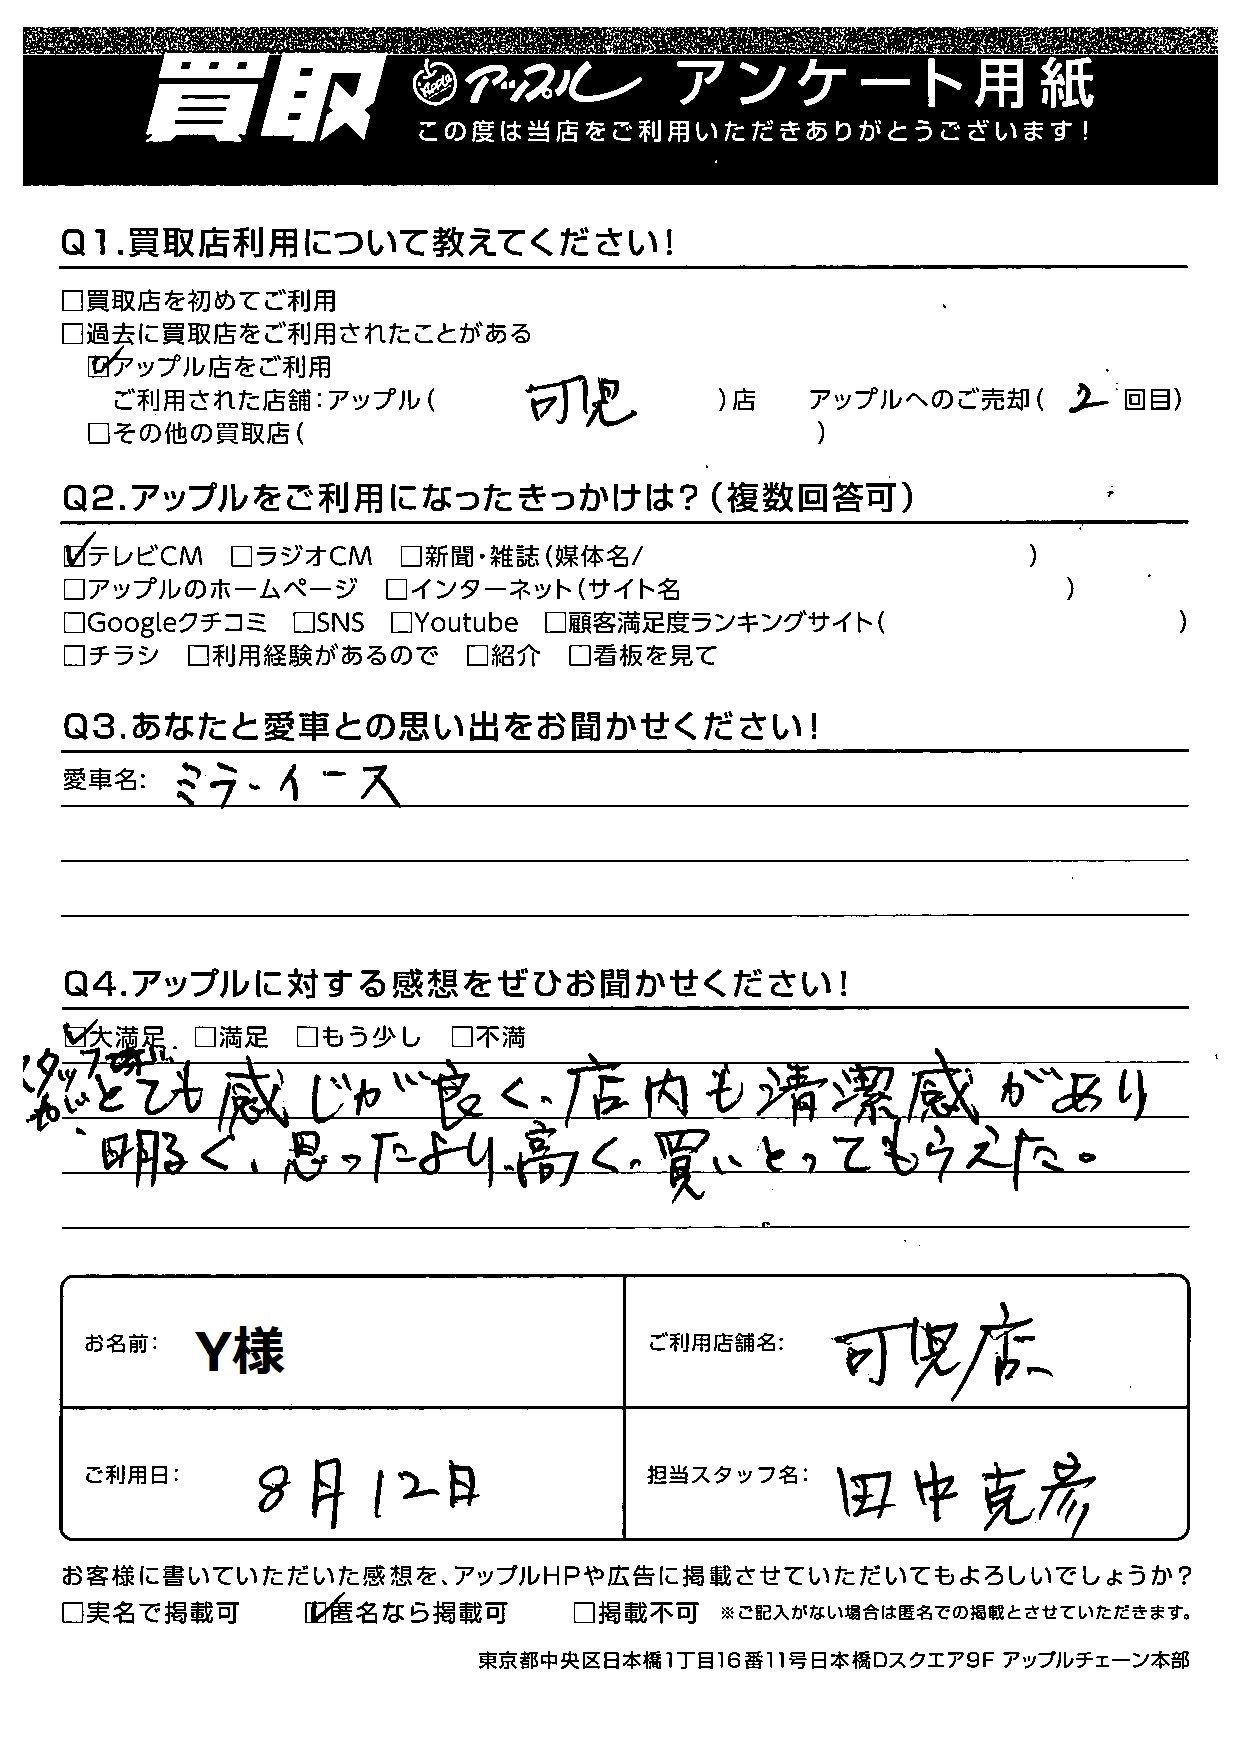 買取 Apple アップル アンケート用紙
この度は当店をご利用いただきありがとうございます!
Q1.買取店利用について教えてください!
□買取店を初めてご利用
□過去に買取店をご利用されたことがある
☑アップル店をご利用
ご利用された店舗:アップル( 可児 )店 アップルへのご売却( 2 回目)
□その他の買取店( )
Q2.アップルをご利用になったきっかけは?(複数回答可)
☑テレビCM □ラジオCM □新聞・雑誌(媒体名/ )
□アップルのホームページ □インターネット(サイト名 )
□Googleクチコミ □SNS □Youtube □顧客満足度ランキングサイト( )
□チラシ □利用経験があるので □紹介 □看板を見て
Q3.あなたと愛車との思い出をお聞かせください!
愛車名: ミラ・イース
Q4.アップルに対する感想をぜひお聞かせください!
☑大満足 □満足 □もう少し □不満
スタッフ
が とても感じが良く、店内も清潔感があり
明るく、思ったより、高く、買いとってもらえた。
お名前: Y様
ご利用店舗名: 可児店
ご利用日: 8月12日
担当スタッフ名: 田中克彦
お客様に書いていただいた感想を、アップルHPや広告に掲載させていただいてもよろしいでしょうか?
□実名で掲載可 ☑匿名なら掲載可 □掲載不可 ※ご記入がない場合は匿名での掲載とさせていただきます。
東京都中央区日本橋1丁目16番11号日本橋Dスクエア9F アップルチェーン本部